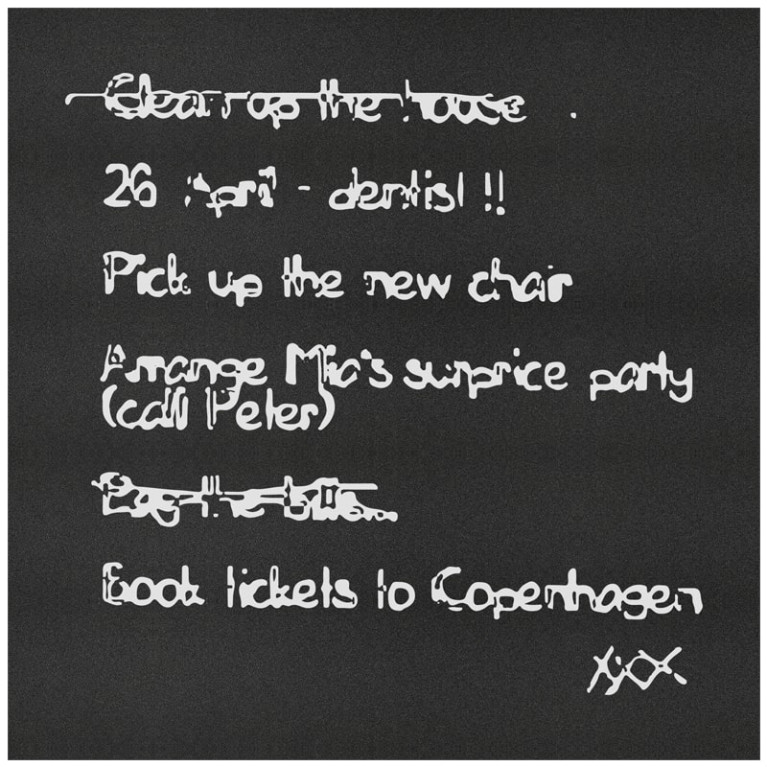 Clean up the house
26 April - dentist !!
Pick up the new chair
Arrange Mia's surprice party
(call Peter)
Pay the bills
Book tickets to Copenhagen
xxx